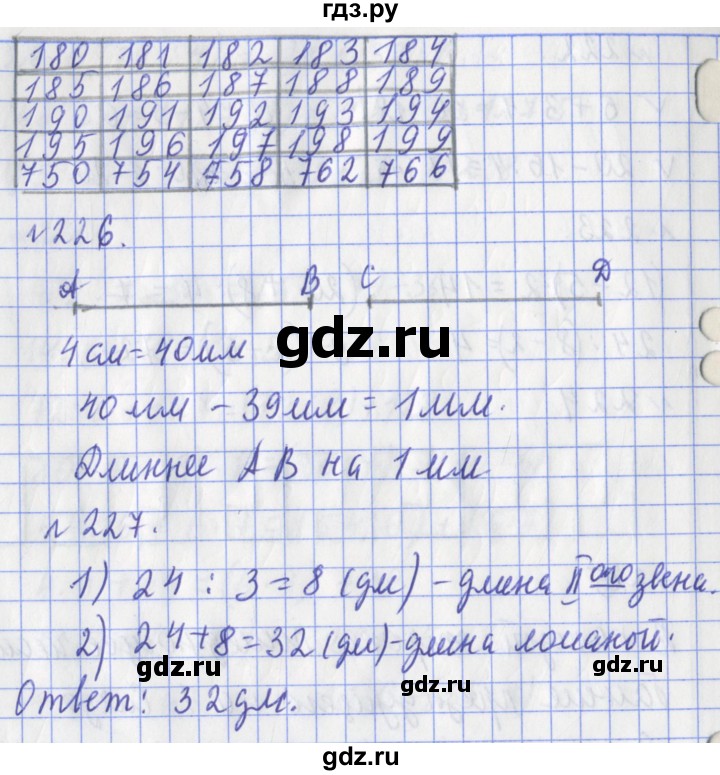 гдз.ру
180 181 182 183 184
185 186 187 188 189
190 191 192 193 194
195 196 197 198 199
750 754 758 762 766
№226.
A B C D
4см=40мм
gdz.ru
40мм - 39мм = 1мм.
Длиннее АВ на 1мм
№227.
1) 24 : 3 = 8 (дм) - длина IIого звена.
2) 24+8=32 (дм)-длина ломаной.
gdz.ru gdz.ru gdz.ru
Ответ: 32дм.
gdz.ru